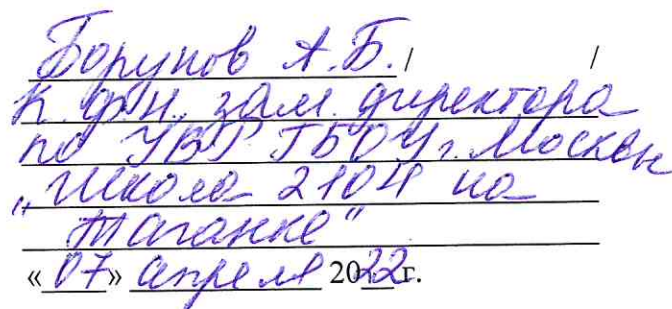 Борунов А.Б. / /
К.ф.н., зам. директора
по УВР ГБОУ г. Москвы
"Школа 2104 на
Таганке"
«07» апреля 2022 г.